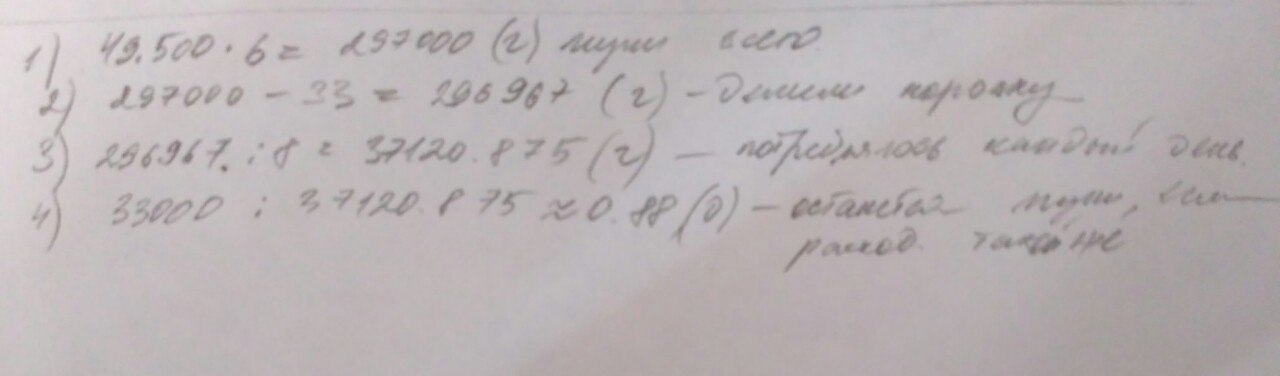 1) 49.500 · 6 = 297000 (г) муки всего
2) 297000 - 33 = 296967 (г) -
3) 296967. : 8 = 37120.875 (г) — каждый день.
4) 33000 : 37120.875 ≈ 0.88 (0) - останется муки,
расход. такой же